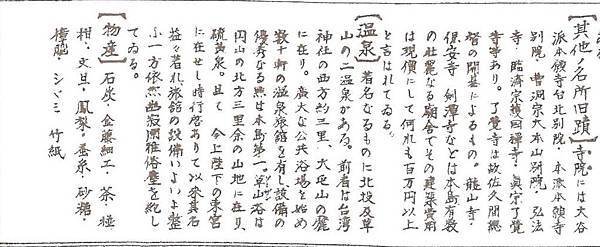 【其他ノ名所旧蹟】寺院には大谷
派本願寺台北別院・本派本願寺
別院・曹洞宗大本山別院・弘法
寺・臨済宗護国禅寺・真宗了覚
寺等あり。了覚寺は故佐久間総
督の開基によるもの。龍山寺・
保安寺・剣潭寺などは本島有数
の壮麗なる廟舎でその建築費用
は現價にして何れも百万円以上
と言はれてゐる。
【温泉】著名なるものに北投及草
山の二温泉がある。前者は台湾
神社の西方約三里、大屯山の麓
に在り。廣大な公共浴場を始め
数十軒の温泉旅館を有し設備の
優秀なる点は本島第一。草山温は
円山の北方三里余の山地に在り、
硫黄泉。且て 今上陛下の東宮
に在せし時行啓ありて以来其名
益々著れ旅館の設備いよいよ整
ふ一方依然幽寂閑雅俗塵を絶し
てゐる。
【物産】石炭・金藤細工・茶・椪
柑・文旦・鳳梨・蓙・砂糖・
樟脳・シバミ 竹紙